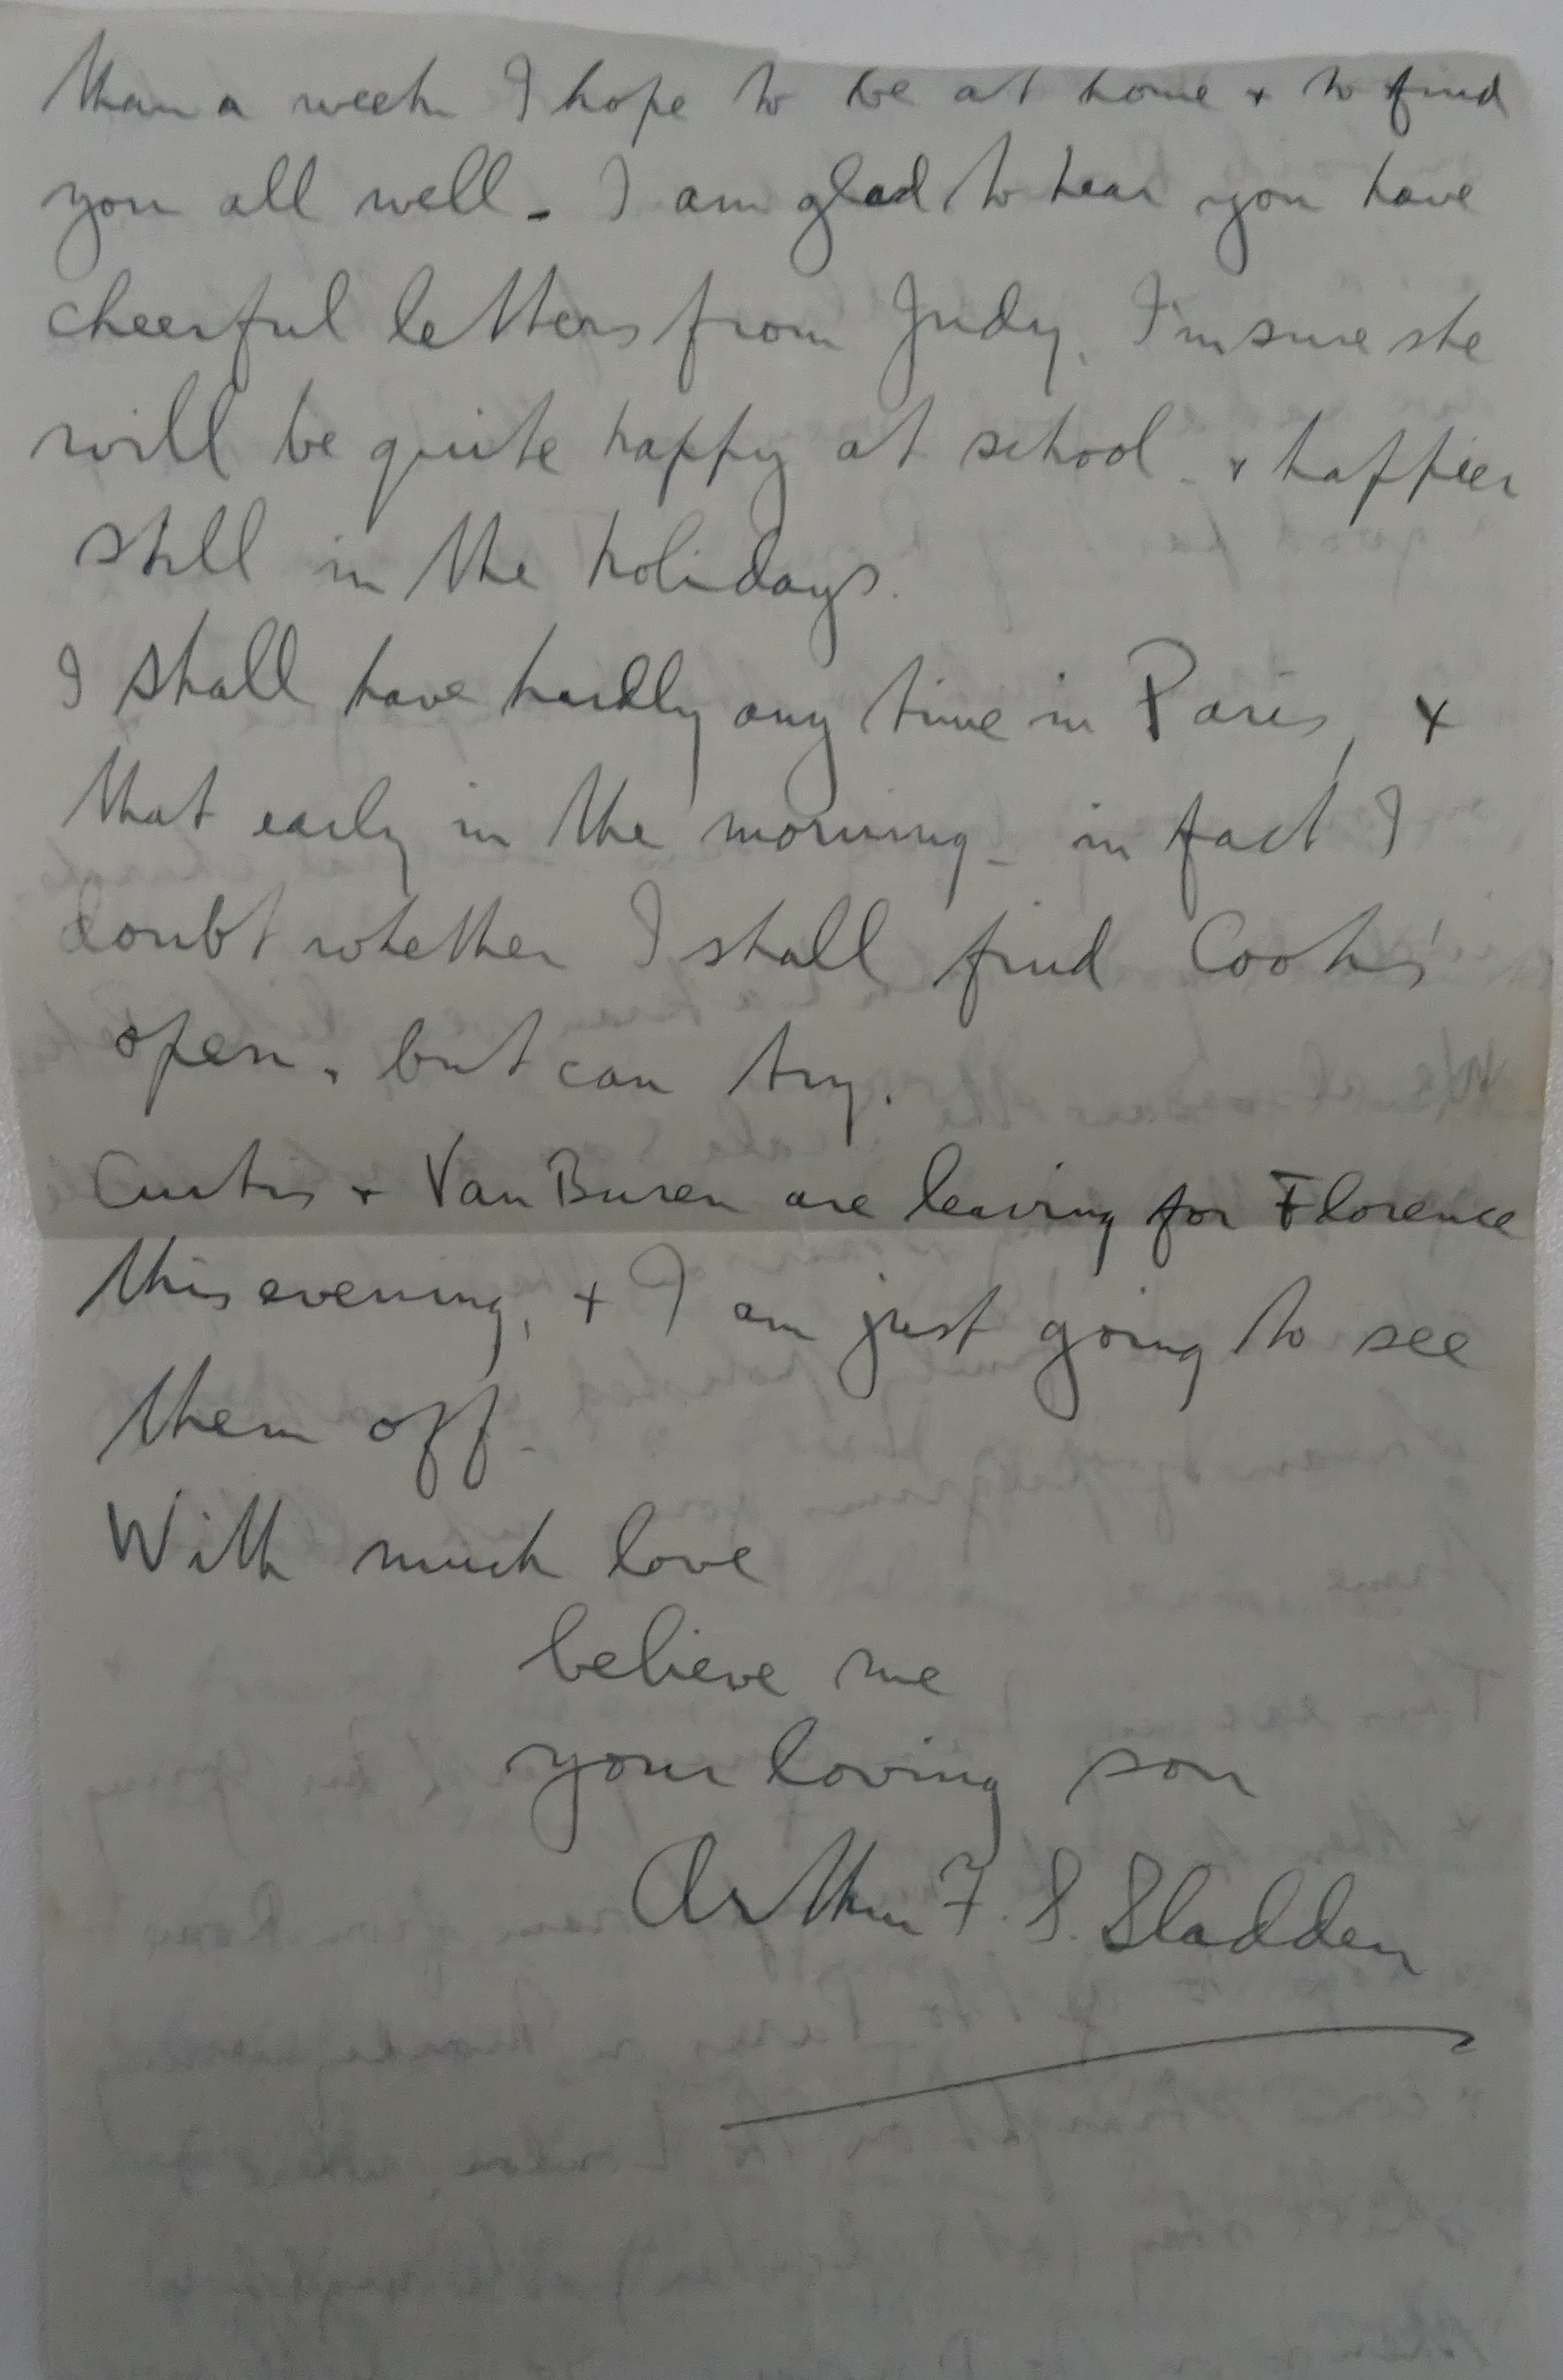 than a week I hope to be at home + to find
you all well - I am glad to hear you have
cheerful letters from Judy. I'm sure she
will be quite happy at school - + happier
still in the holidays.
I shall have hardly any time in Paris, +
that early in the morning - in fact I
doubt whether I shall find Cook's
open, but can try.
Curtis + Van Buren are leaving for Florence
this evening, + I am just going to see
them off -
With much love
believe me
your loving son
Arthur F. S. Sladden